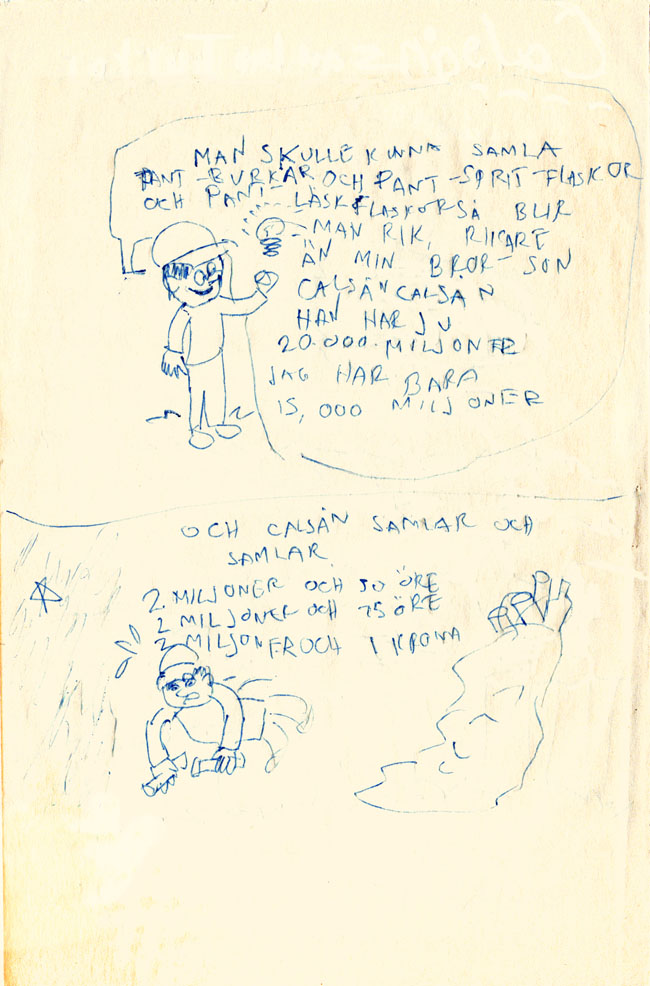 MAN SKULLE KUNNA SAMLA
PANT-BURKAR OCH PANT-SPRIT-FLASKOR
OCH PANT-LÄSKFLASKOR SÅ BLIR
MAN RIK, RIKARE
ÄN MIN BROR-SON
CALSÄNCALSAN
HAN HAR JU
20.000.MILJONER
JAG HAR BARA
15,000 MILJONER
OCH CALSÄN SAMLAR OCH
SAMLAR
2.MILJONER OCH 50 ÖRE
2 MILJONER OCH 75 ÖRE
2 MILJONER OCH 1 KRONA